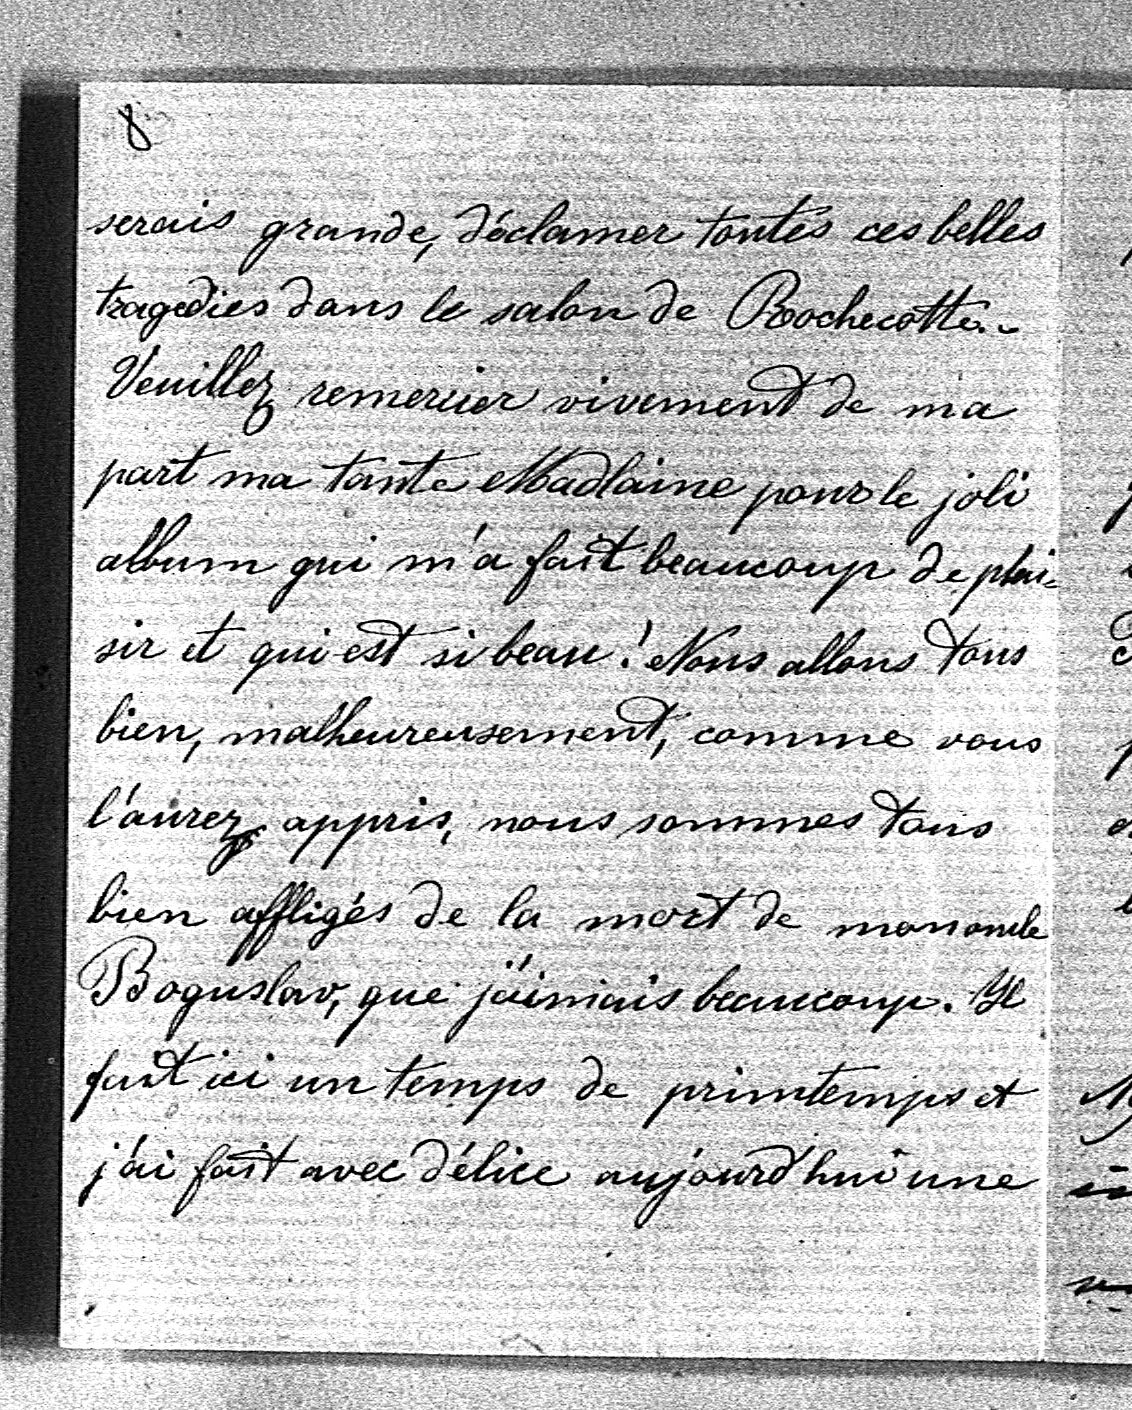 8
serais grande, déclamer toutes ces belles
tragedies dans le salon de Rochecotte.
Veuillez remercier vivement de ma
part ma tante Madlaine pour le joli
album qui m'a fait beaucoup de plai-
sir et qui est si beau! Nous allons tous
bien, malheureusement, comme vous
l'aurez appris, nous sommes tous
bien affligés de la mort de mon oncle
Boguslav, que j'aimais beaucoup. Il
fait ici un temps de printemps et
j'ai fait avec délice aujourd'hui une